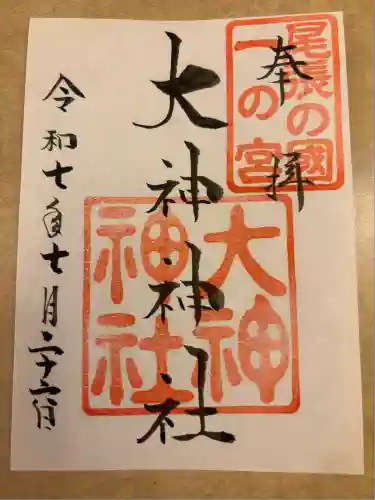 奉拝
尾張の國
一の宮
大神神社
大神
神社
令和七年七月二十六日